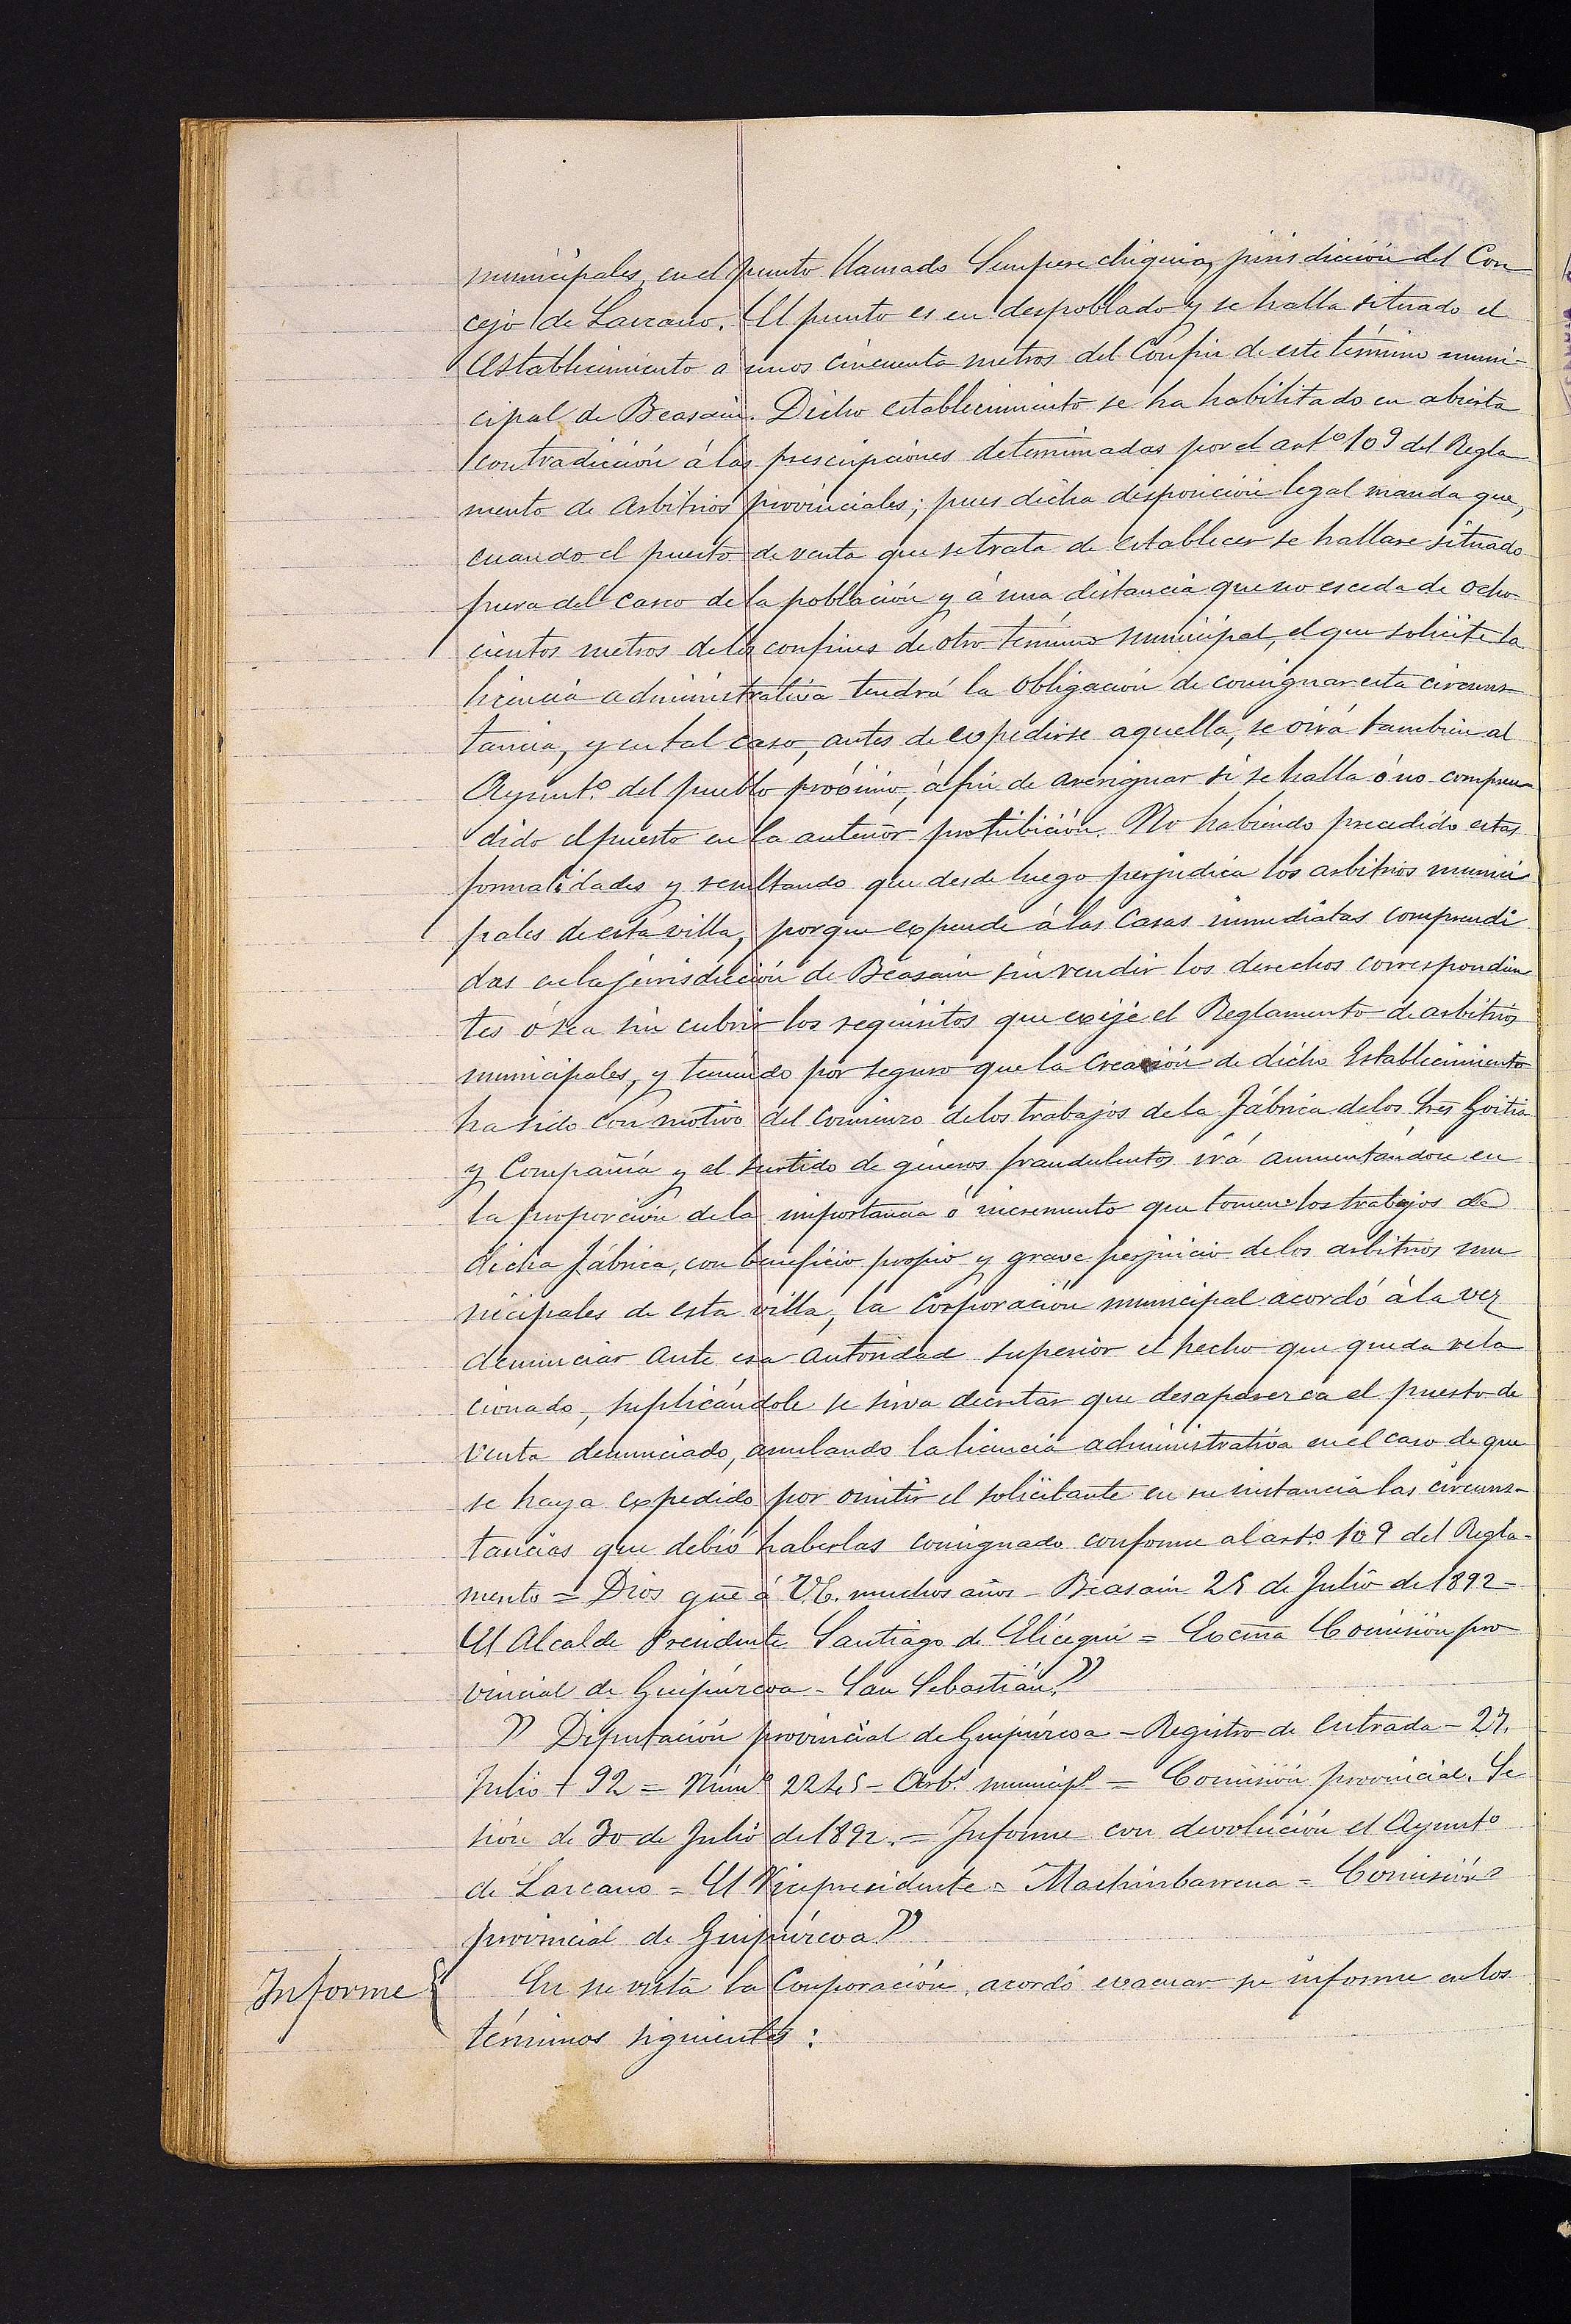 municipales, en el punto llamado Sempere chiquia, jurisdicción del Con
cejo de Lazcano. El punto es en despoblado y se halla situado el
establecimiento a unos cincuenta metros del confin de este término muni-
cipal de Beasain. Dicho establecimiento se ha habilitado en abierta
contradición á las prescripciones determinadas por el artº 109 del Regla
mento de arbitrios provinciales; pues dicha disposición legal manda que,
cuando el puesto de venta que se trata de establecer se hallare situado
fuera del casco de la población y á una distancia que no esceda de ocho-
cientos metros de los confines de otro término municipal, el que solicite la
licencia administrativa tendrá la obligación de consignar esta circuns-
tancia, y en tal caso, antes de expedirse aquella, se oirá tambien al
Ayuntº. del pueblo próximo, á fin de averiguar si se halla ó no compren
dido el puesto en la anterior prohibición. No habiendo precedido estas
formalidades y resultando que desde luego perjudica los arbitrios munici
pales de esta villa, porque expende á las casas inmediatas comprendi
das en la jurisdicción de Beasain sin rendir los derechos correspondien
tes ó sea sin cubrir los requisitos que exije el Reglamento de arbitrios
municipales, y teniendo por seguro que la creación de dicho Establecimiento
ha sido con motivo del comienzo de los trabajos de la Fábrica de los Sres Goitia
y Compañía y el surtido de géneros fraudulentos irá aumentándose en
la proporción de la importancia ó incremento que tomen los trabajos de
dicha fábrica, con beneficio propio y grave perjuicio de los arbitrios mu
nicipales de esta villa, la Corporación municipal acordó á la vez
denunciar ante esa autoridad superior el hecho que queda rela
cionado, suplicándole se sirva decretar que desaparezca el puesto de
venta denunciado, anulando la licencia administrativa en el caso de que
se haya expedido por omitir el solicitante en su instancia las circuns-
tancias que debió haberlas consignado conforme al artº. 109 del Regla-
mento = Dios gue á V.E. muchos años - Beasain 25 de Julio de 1892 -
El Alcalde Presidente Santiago de Elicegui = Excma Comisión pro
vincial de Guipúzcoa - San Sebastián."
" Diputación provincial de Guipúzcoa - Registro de entrada - 27.
Julio + 92 = Númº 2245 - Arbs. municips = Comisión provincial. Se
sión de 30 de Julio de 1892. = Informe con devolución el Ayuntº
de Lazcano = El Vicepresidente = Machimbarrena = Comisión
provincial de Guipúzcoa"
Informe { En su vista la Corporación, acordó evacuar su informe en los
términos siguientes: